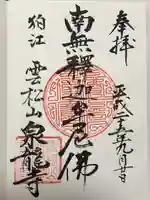 奉拝
平成二五年九月廿日
南無釋迦牟尼佛
狛江
雲松山泉龍寺